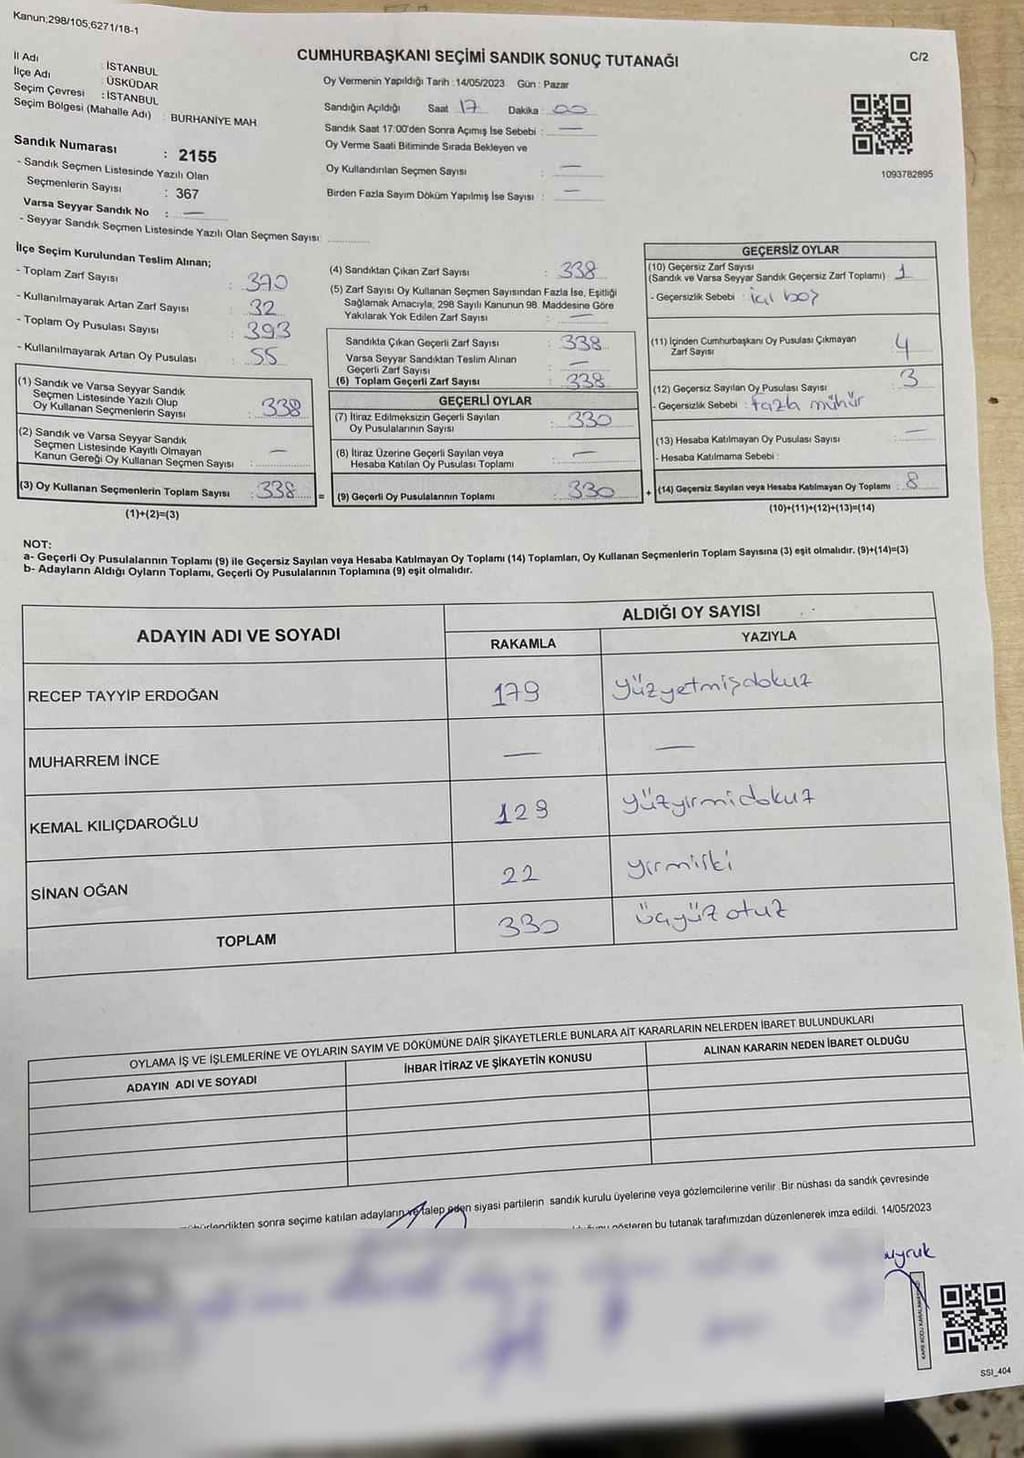 Kanun;298/105;6271/18-1
CUMHURBAŞKANI SEÇİMİ SANDIK SONUÇ TUTANAĞI
C/2
İl Adı : İSTANBUL
İlçe Adı : ÜSKÜDAR
Seçim Çevresi : İSTANBUL
Seçim Bölgesi (Mahalle Adı) : BURHANİYE MAH
Sandık Numarası : 2155
- Sandık Seçmen Listesinde Yazılı Olan
Seçmenlerin Sayısı : 367
Varsa Seyyar Sandık No : —
- Seyyar Sandık Seçmen Listesinde Yazılı Olan Seçmen Sayısı
Oy Vermenin Yapıldığı Tarih : 14/05/2023 Gün : Pazar
Sandığın Açıldığı Saat 17 Dakika 00
Sandık Saat 17:00'den Sonra Açımış İse Sebebi : —
Oy Verme Saati Bitiminde Sırada Bekleyen ve
Oy Kullandırılan Seçmen Sayısı : —
Birden Fazla Sayım Döküm Yapılmış İse Sayısı : —
1093782895
İlçe Seçim Kurulundan Teslim Alınan;
- Toplam Zarf Sayısı : 370
- Kullanılmayarak Artan Zarf Sayısı : 32
- Toplam Oy Pusulası Sayısı : 393
- Kullanılmayarak Artan Oy Pusulası : 55
(1) Sandık ve Varsa Seyyar Sandık
Seçmen Listesinde Yazılı Olup
Oy Kullanan Seçmenlerin Sayısı : 338
(2) Sandık ve Varsa Seyyar Sandık
Seçmen Listesinde Kayıtlı Olmayan
Kanun Gereği Oy Kullanan Seçmen Sayısı : —
(3) Oy Kullanan Seçmenlerin Toplam Sayısı : 338
(1)+(2)=(3)
(4) Sandıktan Çıkan Zarf Sayısı : 338
(5) Zarf Sayısı Oy Kullanan Seçmen Sayısından Fazla İse, Eşitliği
Sağlamak Amacıyla, 298 Sayılı Kanunun 98. Maddesine Göre
Yakılarak Yok Edilen Zarf Sayısı : —
Sandıkta Çıkan Geçerli Zarf Sayısı : 338
Varsa Seyyar Sandıktan Teslim Alınan
Geçerli Zarf Sayısı : —
(6) Toplam Geçerli Zarf Sayısı : 338
GEÇERLİ OYLAR
(7) İtiraz Edilmeksizin Geçerli Sayılan
Oy Pusulalarının Sayısı : 330
(8) İtiraz Üzerine Geçerli Sayılan veya
Hesaba Katılan Oy Pusulası Toplamı : —
= (9) Geçerli Oy Pusulalarının Toplamı : 330
GEÇERSİZ OYLAR
(10) Geçersiz Zarf Sayısı
(Sandık ve Varsa Seyyar Sandık Geçersiz Zarf Toplamı) : 1
- Geçersizlik Sebebi : içi boş
(11) İçinden Cumhurbaşkanı Oy Pusulası Çıkmayan
Zarf Sayısı 4
(12) Geçersiz Sayılan Oy Pusulası Sayısı : 3
- Geçersizlik Sebebi : fazla mühür
(13) Hesaba Katılmayan Oy Pusulası Sayısı : —
- Hesaba Katılmama Sebebi :
+ (14) Geçersiz Sayılan veya Hesaba Katılmayan Oy Toplamı : 8
(10)+(11)+(12)+(13)=(14)
NOT:
a- Geçerli Oy Pusulalarının Toplamı (9) ile Geçersiz Sayılan veya Hesaba Katılmayan Oy Toplamı (14) Toplamları, Oy Kullanan Seçmenlerin Toplam Sayısına (3) eşit olmalıdır. (9)+(14)=(3)
b- Adayların Aldığı Oyların Toplamı, Geçerli Oy Pusulalarının Toplamına (9) eşit olmalıdır.
ADAYIN ADI VE SOYADI
ALDIĞI OY SAYISI
RAKAMLA YAZIYLA
RECEP TAYYİP ERDOĞAN 179 yüzyetmişdokuz
MUHARREM İNCE — —
KEMAL KILIÇDAROĞLU 129 yüzyirmidokuz
SİNAN OĞAN 22 yirmiiki
TOPLAM 330 üçyüz otuz
OYLAMA İŞ VE İŞLEMLERİNE VE OYLARIN SAYIM VE DÖKÜMÜNE DAİR ŞİKAYETLERLE BUNLARA AİT KARARLARIN NELERDEN İBARET BULUNDUKLARI
ADAYIN ADI VE SOYADI İHBAR İTİRAZ VE ŞİKAYETİN KONUSU ALINAN KARARIN NEDEN İBARET OLDUĞU
sonra seçime katılan adayların talep eden siyasi partilerin sandık kurulu üyelerine veya gözlemcilerine verilir. Bir nüshası da sandık çevresinde
gösteren bu tutanak tarafımızdan düzenlenerek imza edildi. 14/05/2023
SSI_404